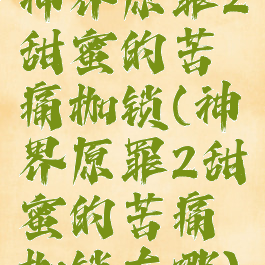 神界原罪2
甜蜜的苦
痛枷锁(神
界原罪2甜
蜜的苦痛